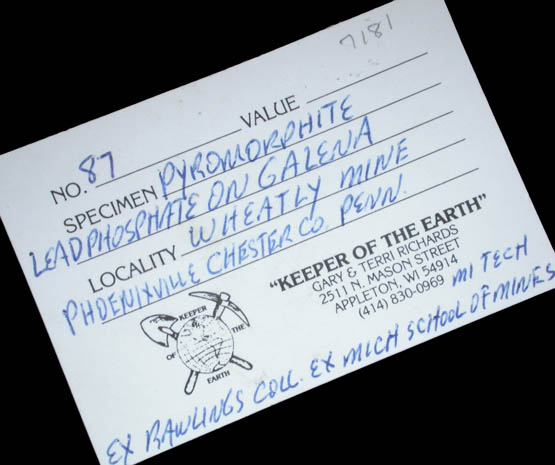 7181
NO. 87 VALUE
SPECIMEN PYROMORPHITE
LEAD PHOSPHATE ON GALENA
LOCALITY WHEATLY MINE
PHOENIXVILLE CHESTER CO. PENN.
"KEEPER OF THE EARTH"
GARY & TERRI RICHARDS
2511 N. MASON STREET
APPLETON, WI 54914
(414) 830-0969
KEEPER OF THE EARTH
MI TECH
EX RAWLINGS COLL. EX MICH SCHOOL OF MINES